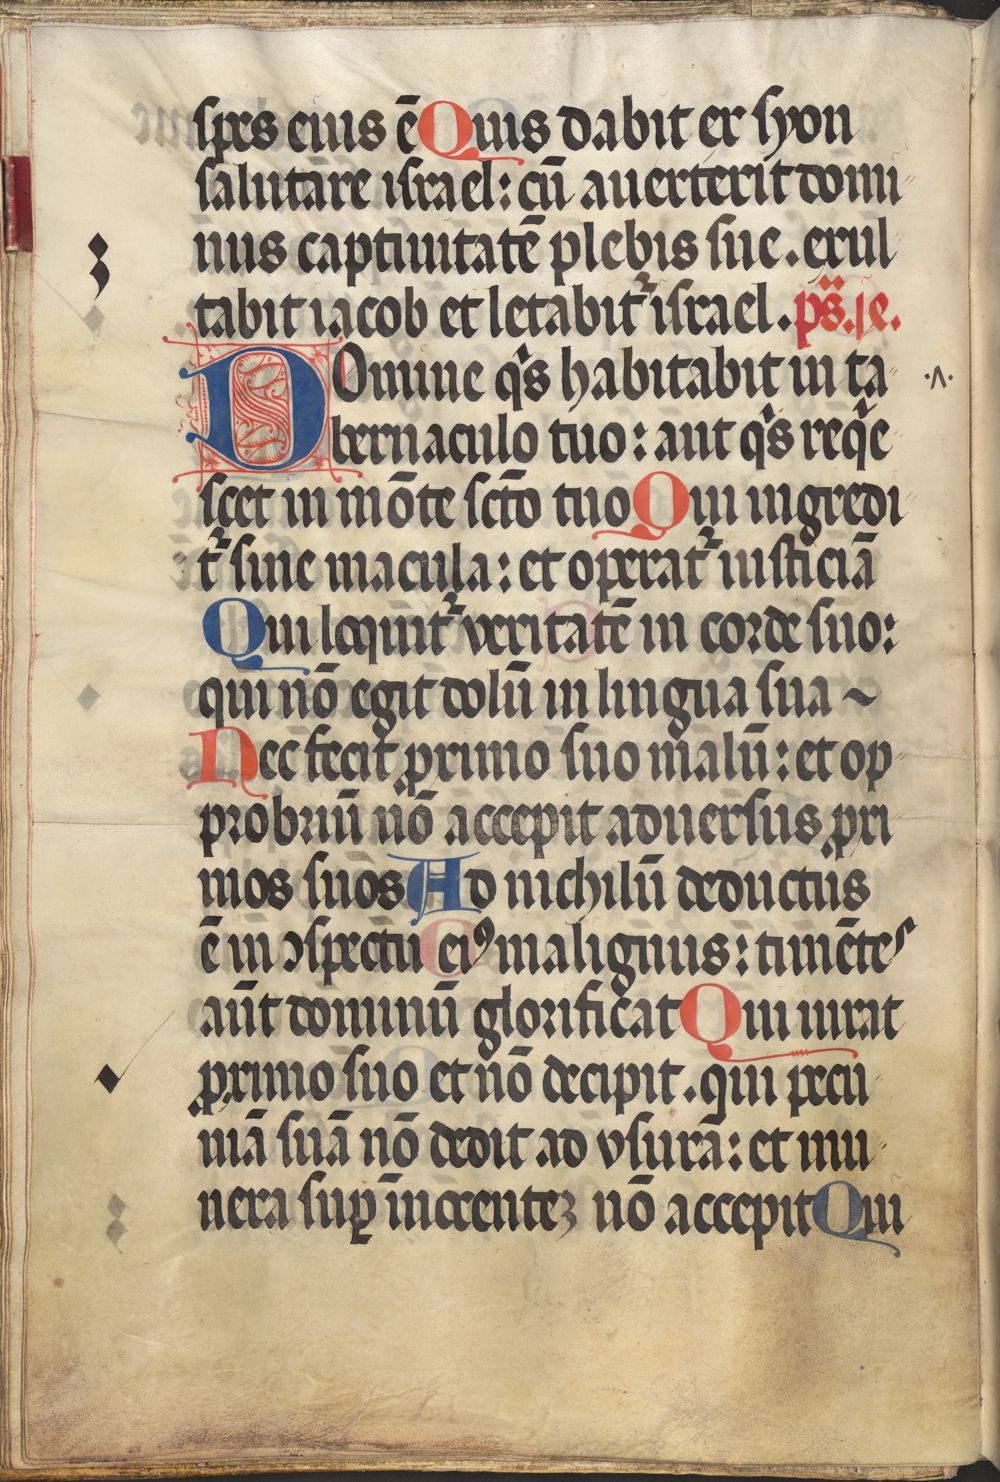 spes eius ē Quis dabit ex syon
salutare israel: cū auerterit domi
nus captiuitatē plebis sue. exul
tabit iacob et letabit᷑ israel. ps̄. dd.
Domine qͥs habitabit in ta
bernaculo tuo: aut qͥs reqͥe
scet in mōte scō tuo Qui ingredi
t᷑ sine macula: et operat᷑ iusticiā
Qui loquit᷑ veritatē in corde suo:
qui nō egit dolū in lingua sua ~
Nec fecit ꝓximo suo malū: et op
probriū nō accepit aduersus ꝓxi
mos suos Ad nichilū deductus
ē in ↄspectu eiꝰ malignus: timētes
aūt dominū glorificat Qui iurat
ꝓximo suo et nō decipit. qui pecu
niā suā nō dedit ad vsurā: et mu
nera suꝑ īnocentez nō accepit Qui